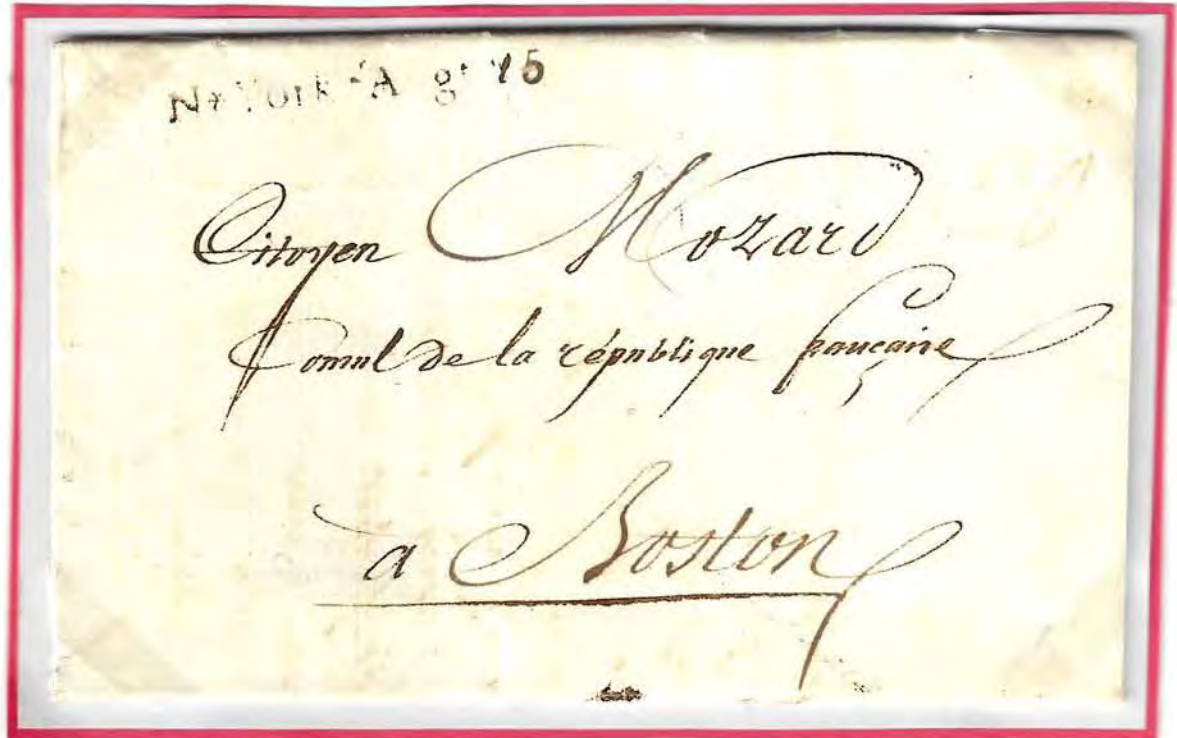 N*York Aug 15
Citoyen Mozard
Consul de la république francaise
a Boston